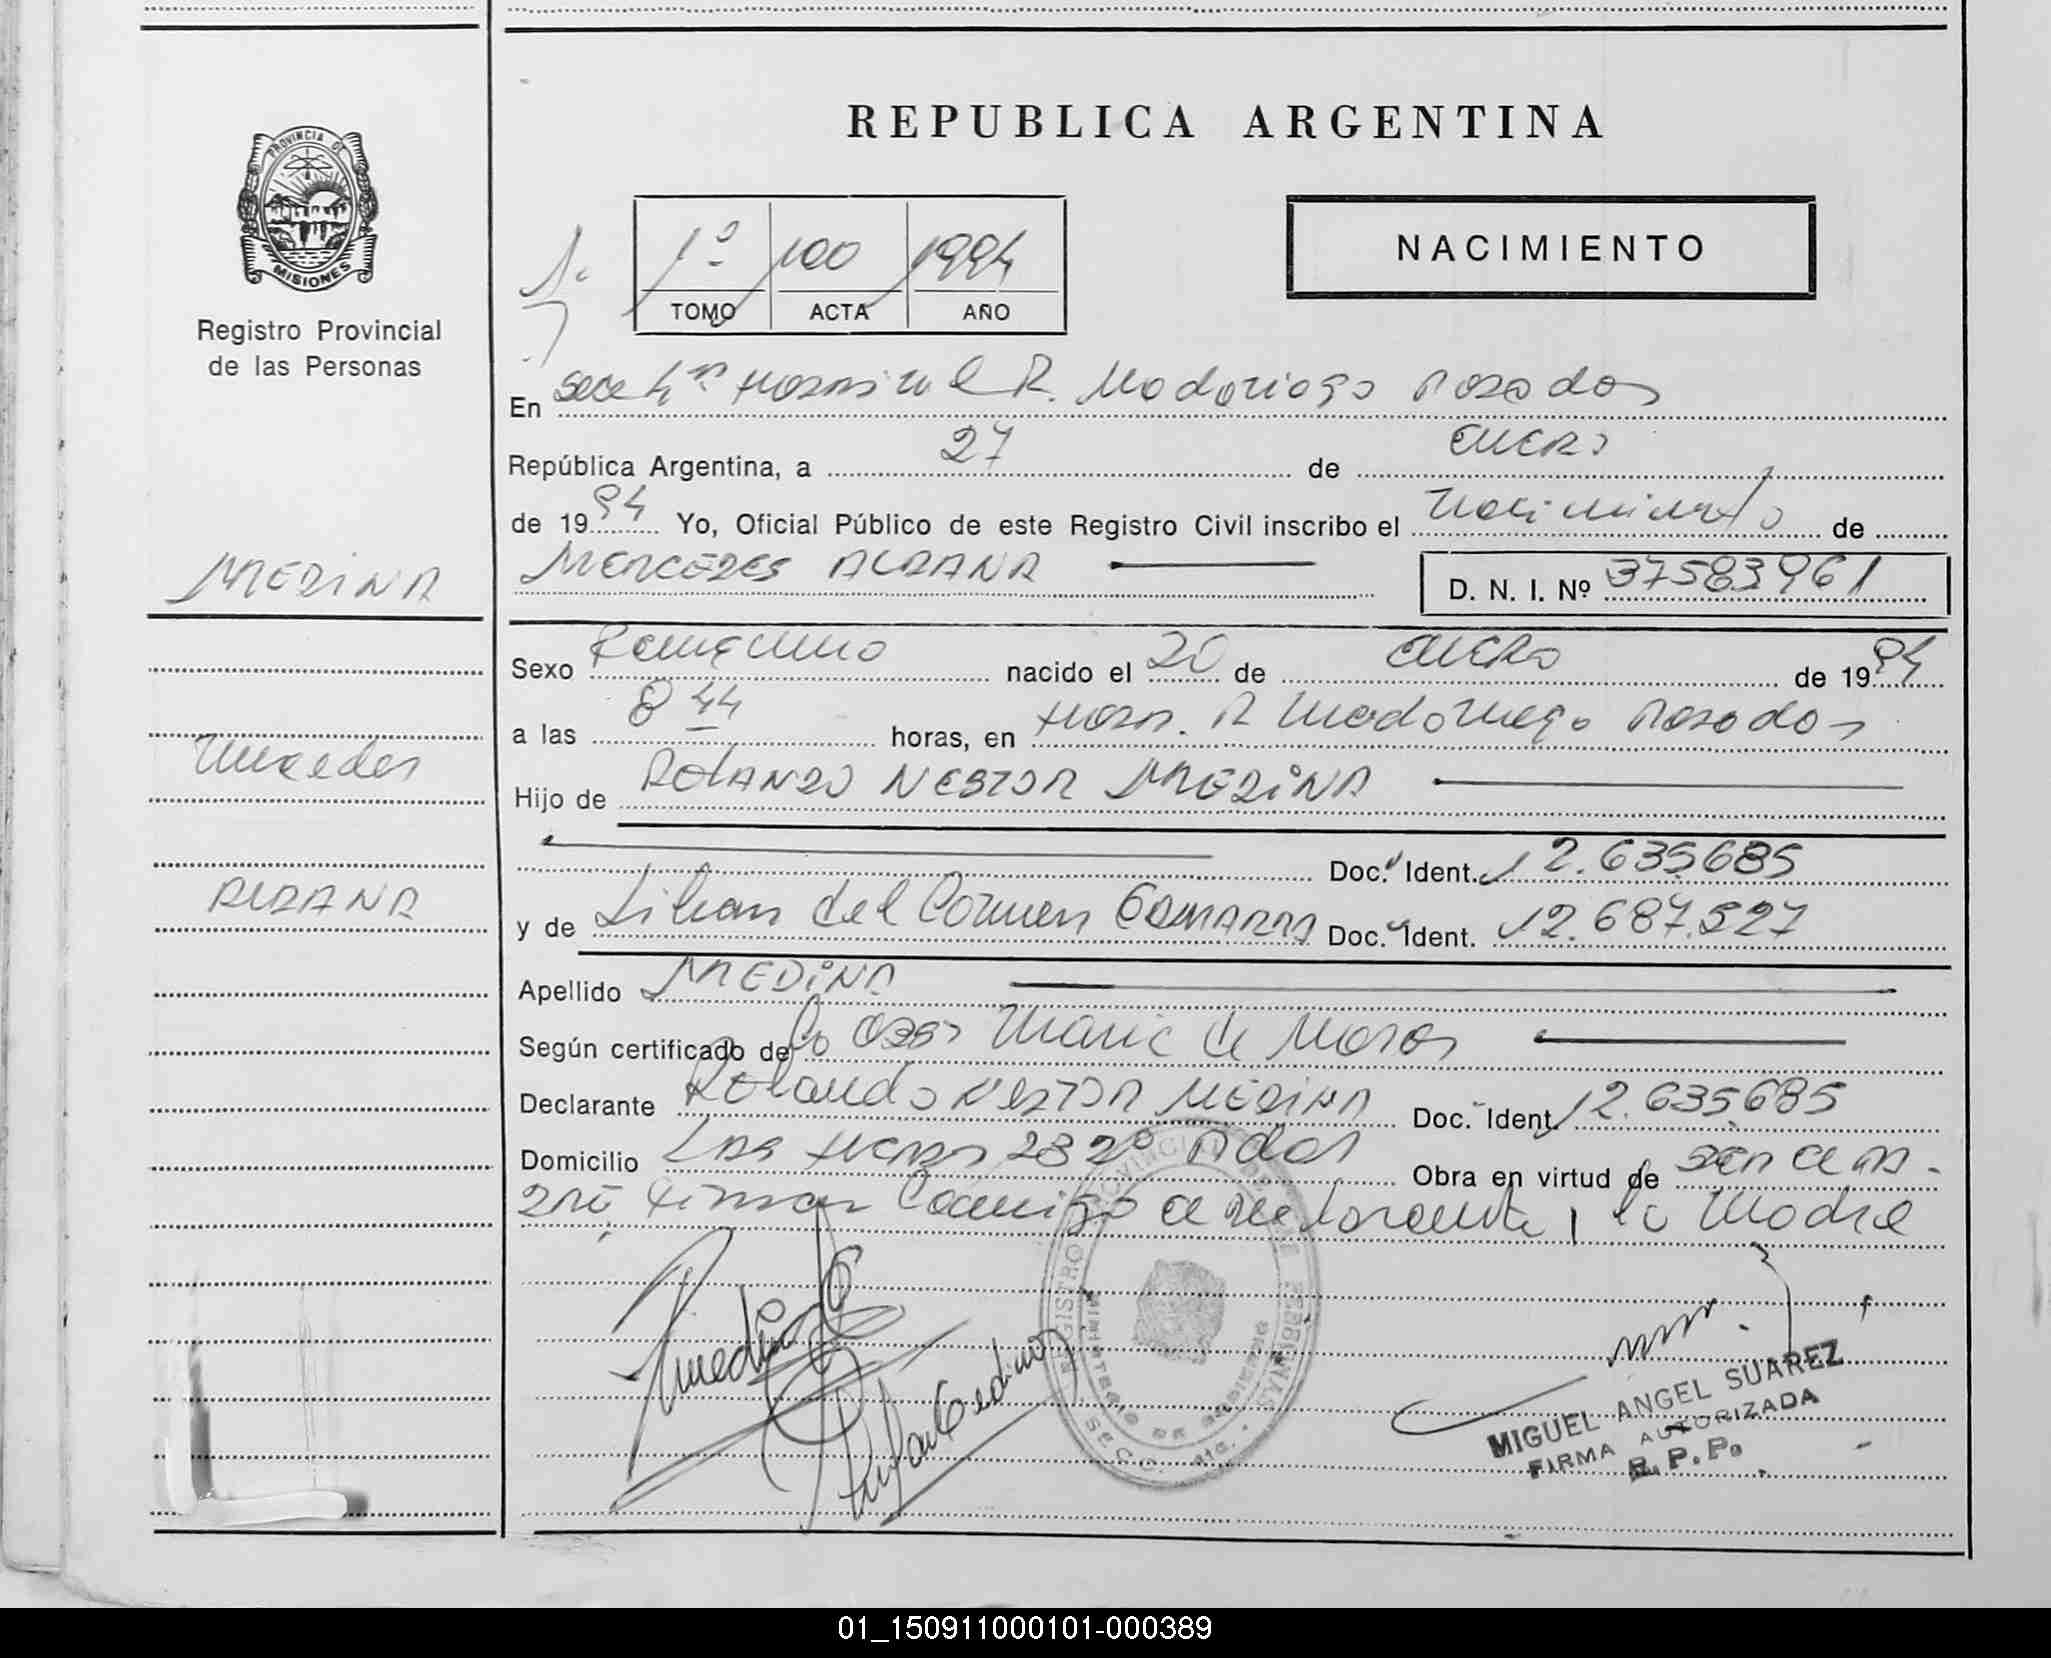 REPUBLICA ARGENTINA
PROVINCIA DE
MISIONES
Registro Provincial
de las Personas
1º 100 1994
TOMO ACTA AÑO
NACIMIENTO
En R. Madariaga Posadas
República Argentina, a 27 de ENERO
de 1994 Yo, Oficial Público de este Registro Civil inscribo el Nacimiento de
MEDINA
MERCEDES ALDANA
D. N. I. Nº 37583961
Sexo Femenino nacido el 20 de ENERO de 1994
a las 8 44 horas, en Hosp. R Madariaga Posadas
Mercedes
Hijo de ROLANDO NESTOR MEDINA
Doc. Ident. 12.635685
ALDANA
y de Lilian del Carmen GAMARRA Doc. Ident. 12.687.527
Apellido MEDINA
Según certificado de la Marie de
Declarante Rolando NESTOR MEDINA Doc. Ident. 12.635685
Domicilio Las 2º Obra en virtud de
Firman Conmigo el declarante, la Madre
REGISTRO PROVINCIAL DE LAS PERSONAS
MINISTERIO DE GOBIERNO
MIGUEL ANGEL SUAREZ
FIRMA AUTORIZADA
R. P. P.
01_150911000101-000389